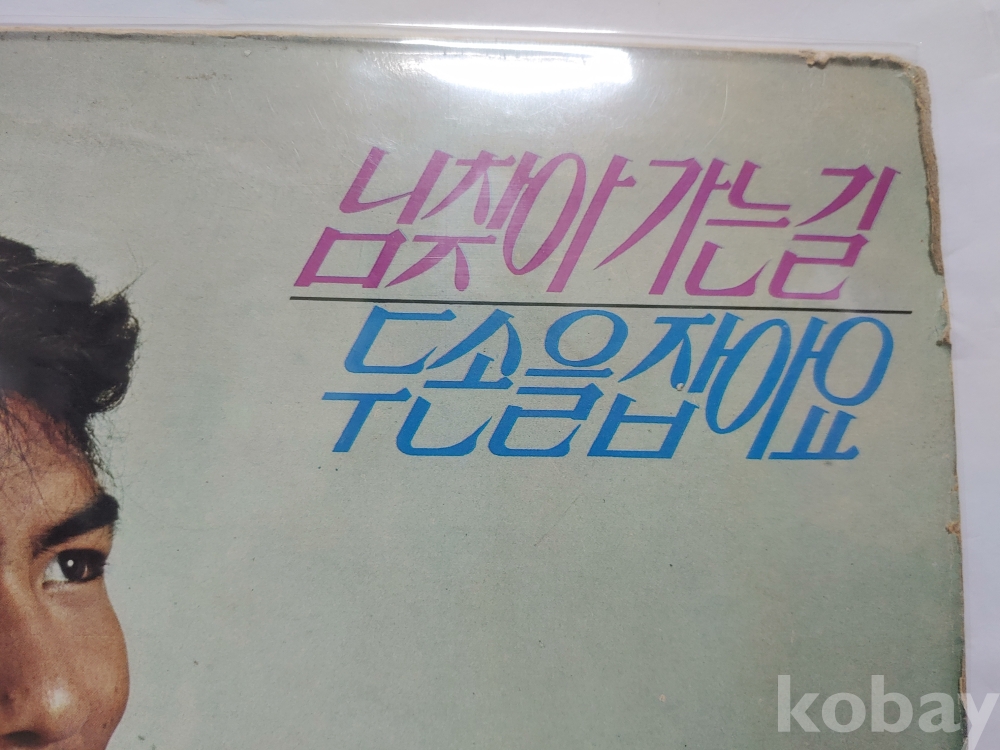 님찾아가는길
두손을잡아요
kobay